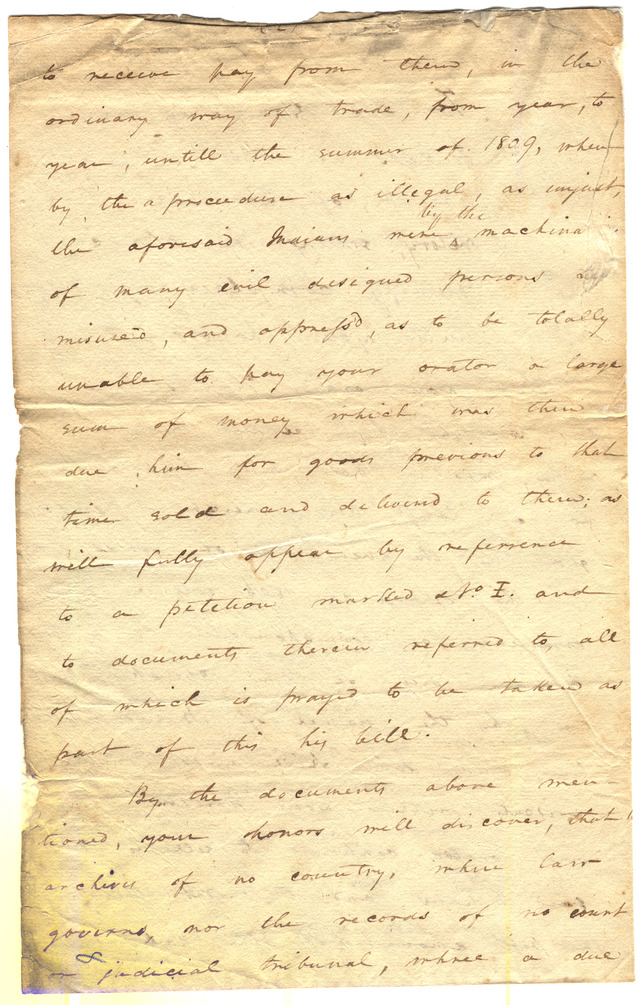 to receive pay from them, in the
ordinary way of trade, from year, to
year, untill the summer of 1809, when
by, the a proceedure as illegal, as unjust,
the aforesaid Indians were, by the machina
of many evil desiged persons so
misused, and oppress'd, as to be totally
unable to pay your orator a large
sum of money which was then
due him for goods previous to that
time sold and deliverd to them; as
will fully appear by referrence
to a petition marked No I. and
to documents therein referred to, all
of which is prayed to be taken as
part of this his bill.
By the documents above men-
tioned, your honors will discover, that
archives of no country, where law
governs, nor the records of no court
or judicial tribunal, where a due